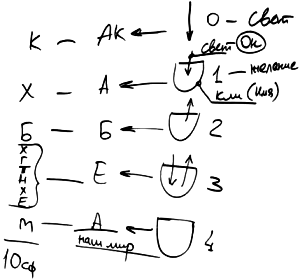 К — АК ← 0 — свет
свет
Х — А ← 1 — желание
кли
Б — Б ← 2
Х
Г
Т
Н
Х
Е
— Е ← 3
М — А ← 4
наш мир
10сф